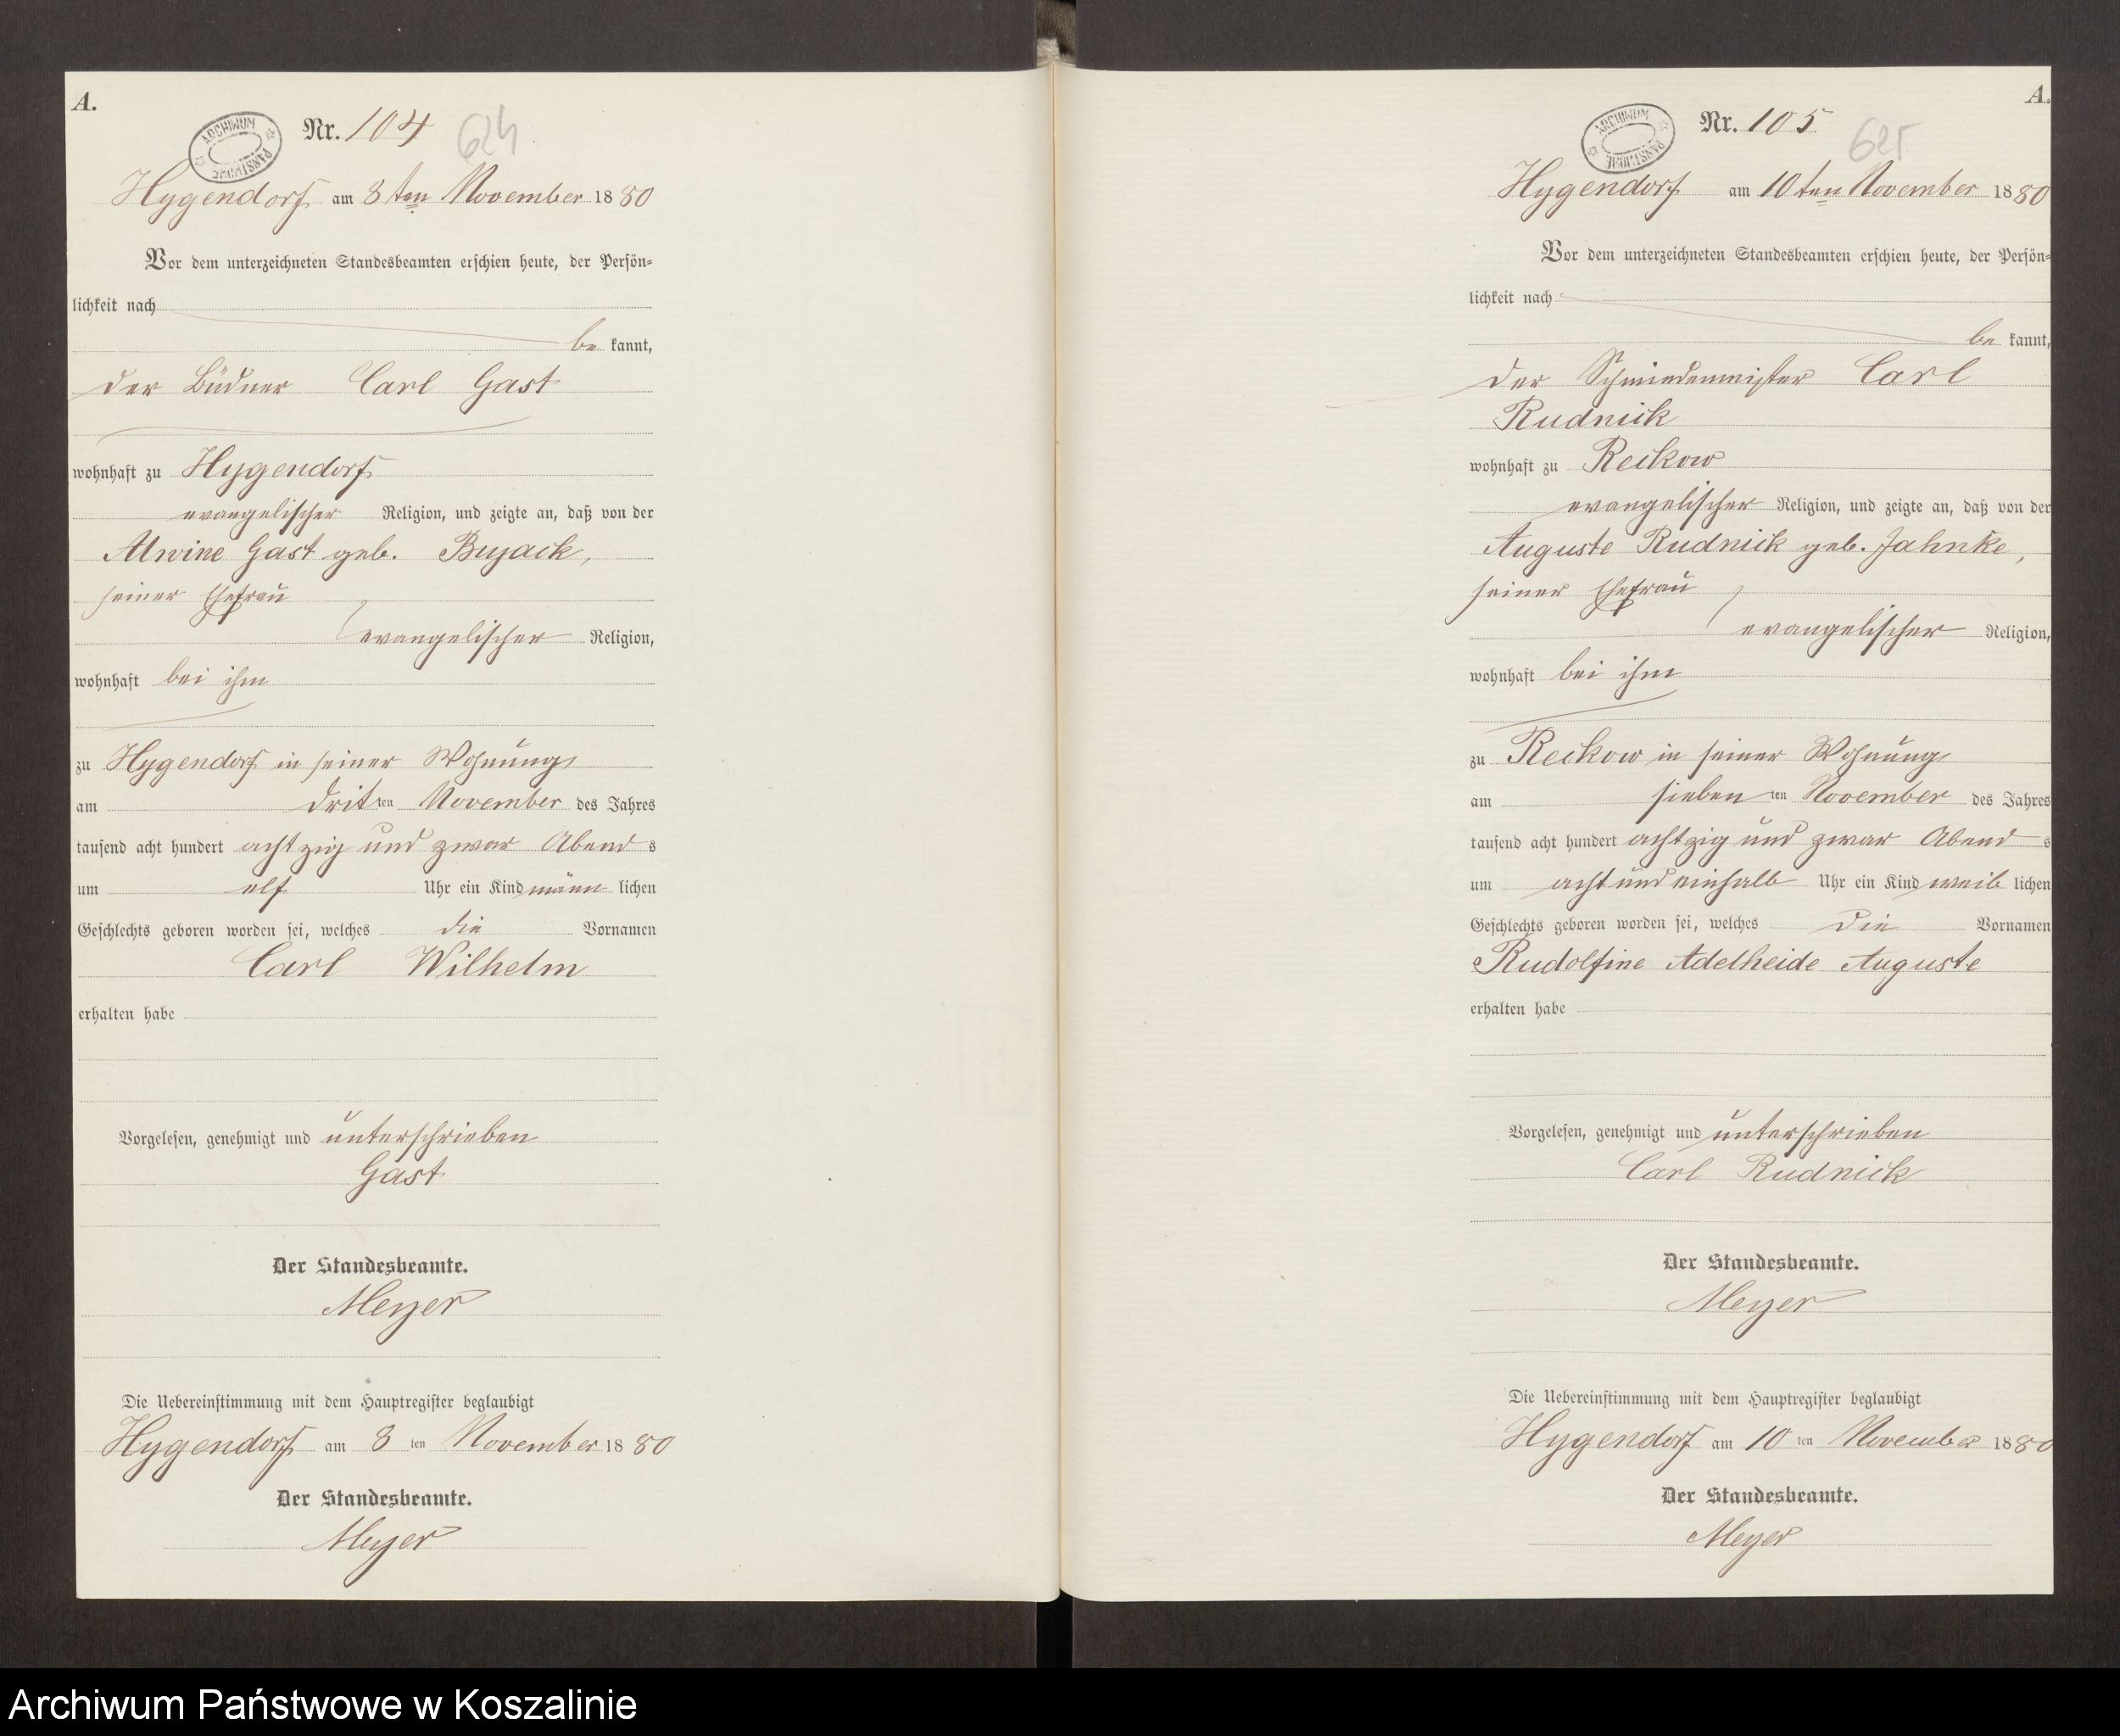 A.
ARCHIWUM PAŃSTWOWE
Nr. 104
624
Hygendorf am 8ten November 1880
Vor dem unterzeichneten Standesbeamten erschien heute, der Persön-
lichkeit nach
be kannt,
der Büdner Carl Gast
wohnhaft zu Hygendorf
evangelischer Religion, und zeigte an, daß von der
Alwine Gast geb. Bujack,
seiner Ehefrau
evangelischer Religion,
wohnhaft bei ihm
zu Hygendorf in seiner Wohnung
am dritten November des Jahres
tausend acht hundert achtzig und zwar Abends
um elf Uhr ein Kind männlichen
Geschlechts geboren worden sei, welches die Vornamen
Carl Wilhelm
erhalten habe
Vorgelesen, genehmigt und unterschrieben
Gast
Der Standesbeamte.
Meyer
Die Uebereinstimmung mit dem Hauptregister beglaubigt
Hygendorf am 8ten November 1880
Der Standesbeamte.
Meyer
A.
ARCHIWUM PAŃSTWOWE
Nr. 105
625
Hygendorf am 10ten November 1880
Vor dem unterzeichneten Standesbeamten erschien heute, der Persön-
lichkeit nach
be kannt,
der Schmiedemeister Carl
Rudnick
wohnhaft zu Reckow
evangelischer Religion, und zeigte an, daß von der
Auguste Rudnick geb. Jahnke,
seiner Ehefrau
evangelischer Religion,
wohnhaft bei ihm
zu Reckow in seiner Wohnung
am siebenten November des Jahres
tausend acht hundert achtzig und zwar Abends
um acht und einhalb Uhr ein Kind weiblichen
Geschlechts geboren worden sei, welches die Vornamen
Rudolfine Adelheide Auguste
erhalten habe
Vorgelesen, genehmigt und unterschrieben
Carl Rudnick
Der Standesbeamte.
Meyer
Die Uebereinstimmung mit dem Hauptregister beglaubigt
Hygendorf am 10ten November 1880
Der Standesbeamte.
Meyer
Archiwum Państwowe w Koszalinie